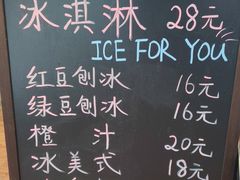 冰淇淋 28元
ICE FOR YOU
红豆刨冰 16元
绿豆刨冰 16元
橙汁 20元
冰美式 18元